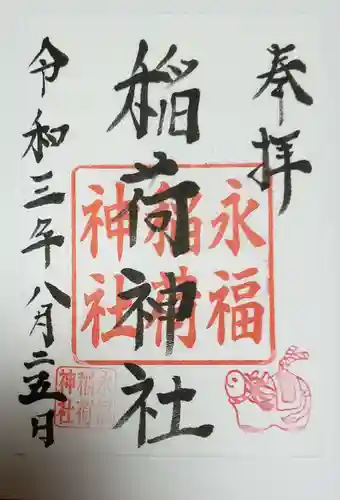 奉拝
稲荷神社
永福
稲荷
神社
令和三年八月二五日
永福
稲荷
神社